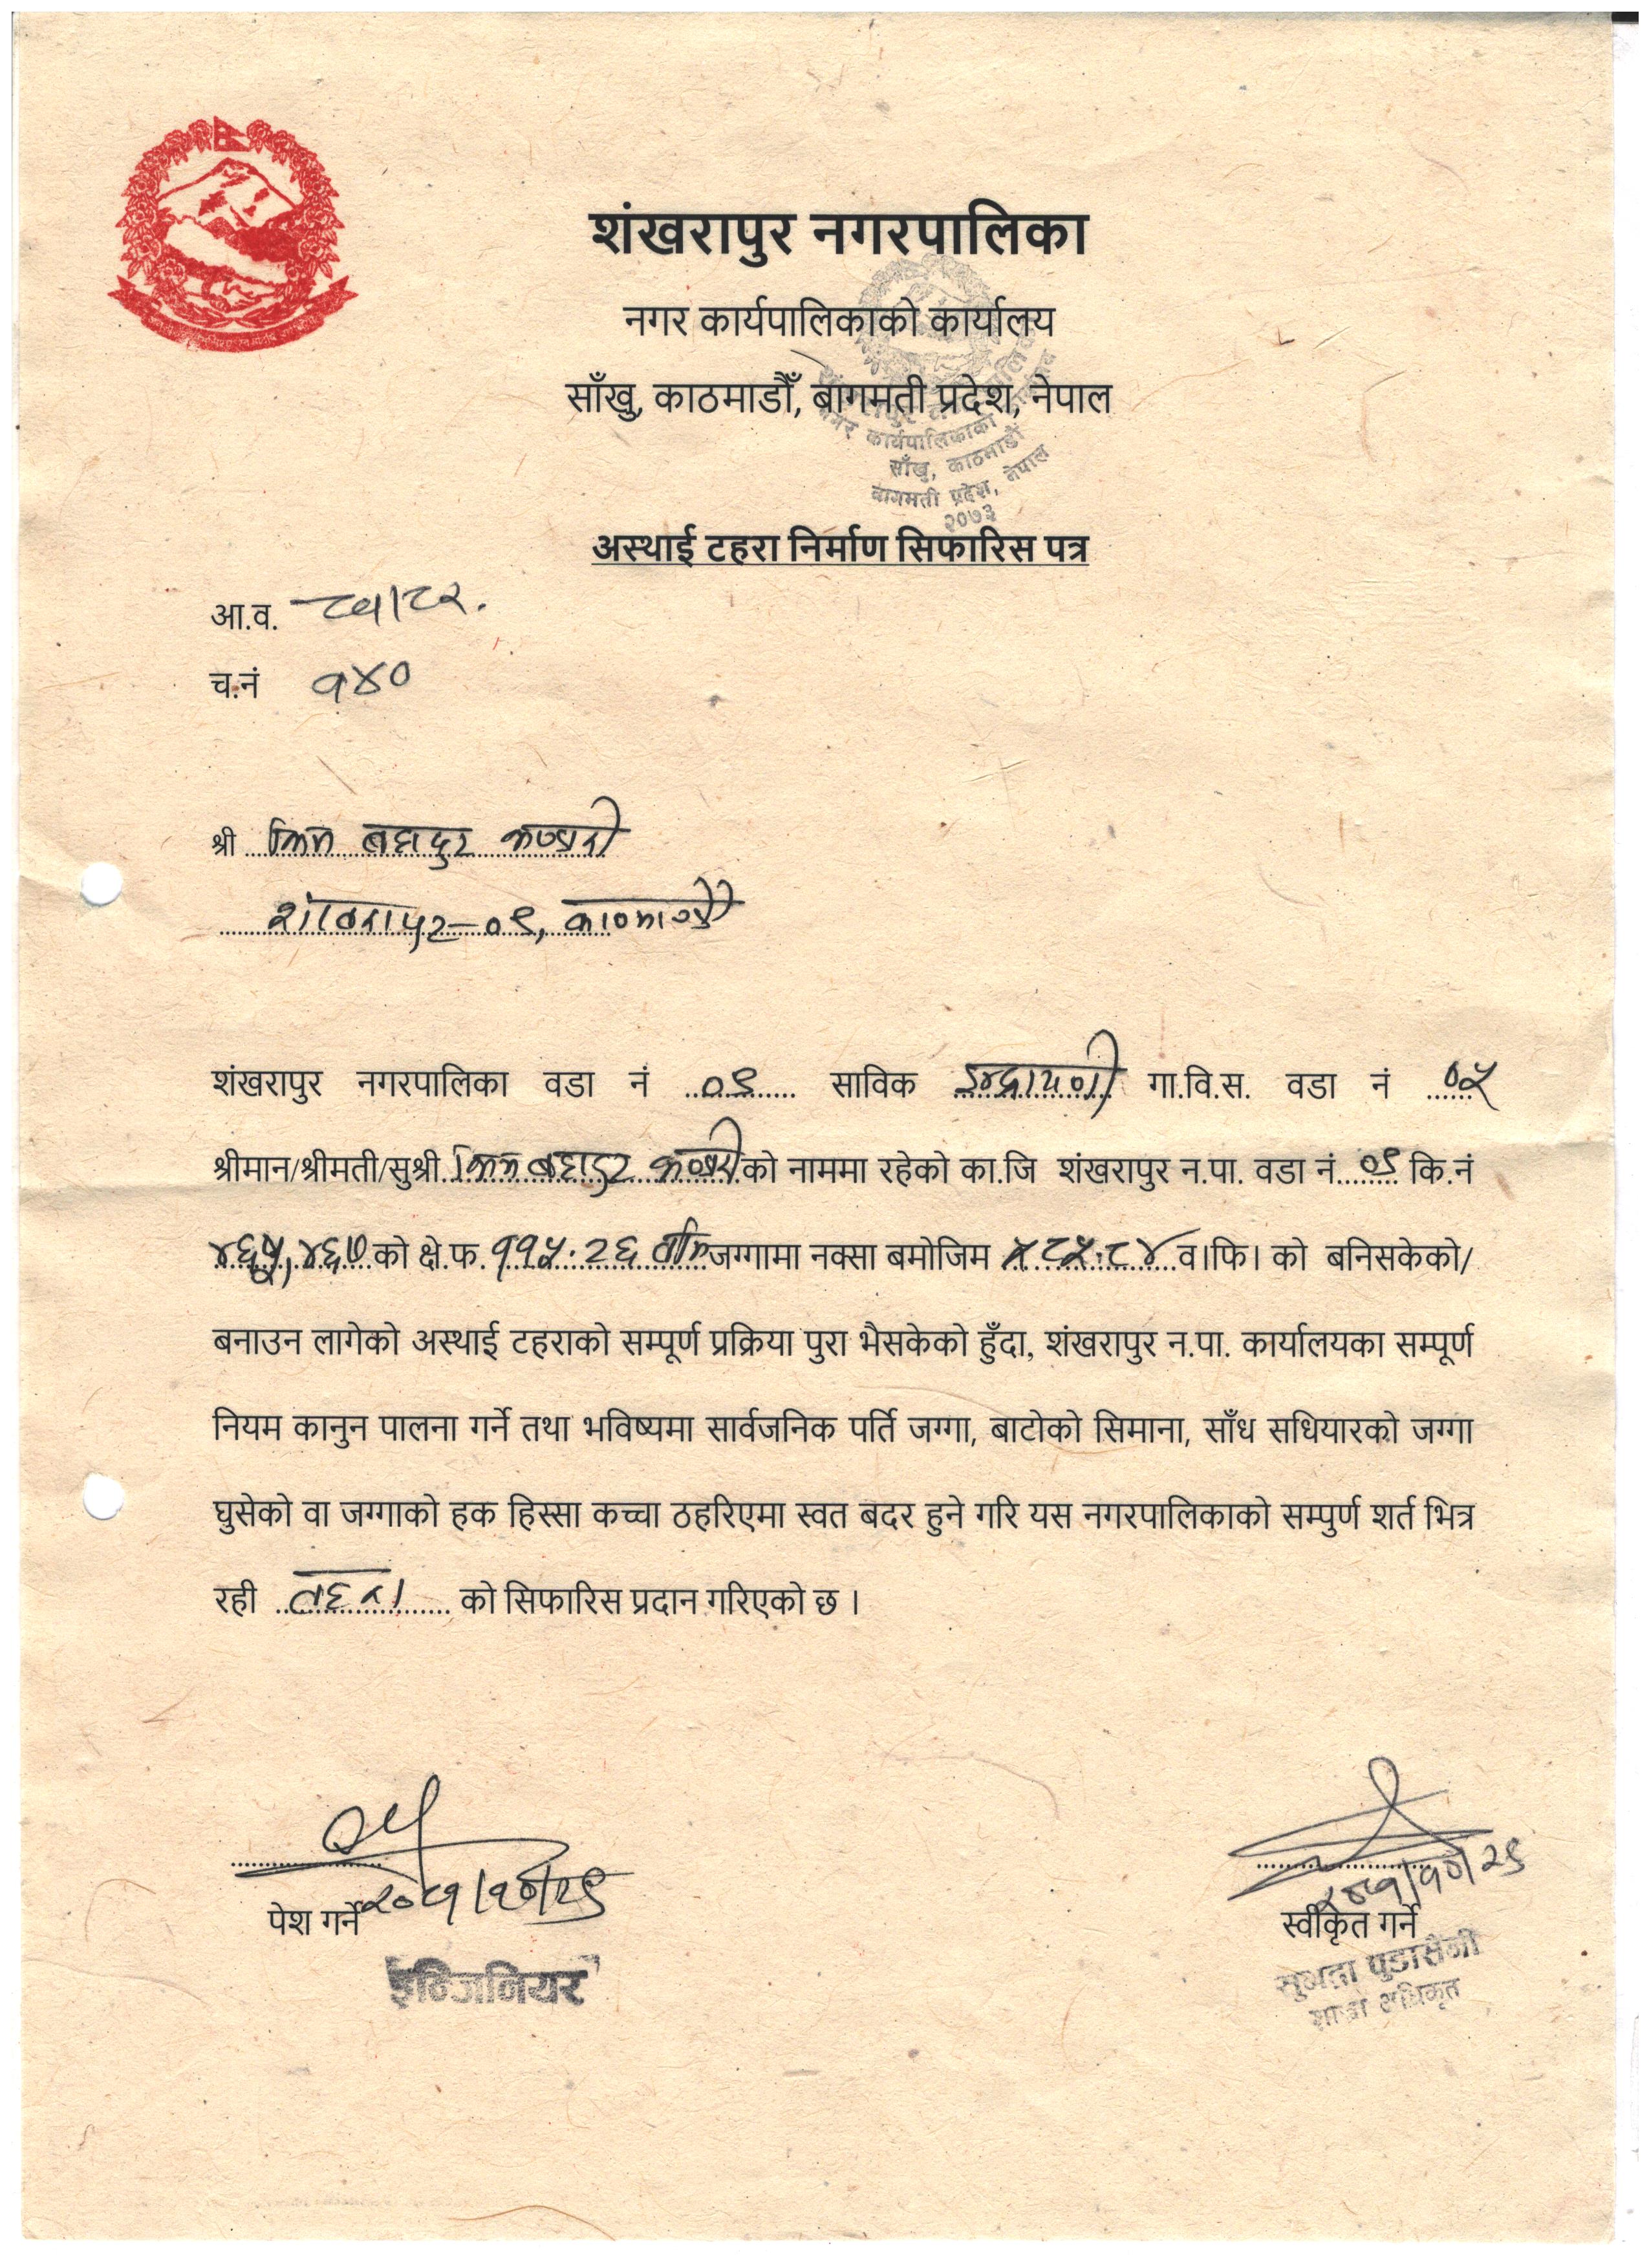 शंखरापुर नगरपालिका
नगर कार्यपालिकाको कार्यालय
साँखु, काठमाडौँ, बागमती प्रदेश, नेपाल
नगर कार्यपालिकाको
साँखु, काठमाडौं
बागमती प्रदेश, नेपाल
२०७३
अस्थाई टहरा निर्माण सिफारिस पत्र
आ.व. ८१/८२.
च.नं १४०
श्री बहादुर
शंखरापुर-०९, काठमाडौं
शंखरापुर नगरपालिका वडा नं ०९ साविक इन्द्रायणी गा.वि.स. वडा नं ०५
श्रीमान/श्रीमती/सुश्री बहादुर को नाममा रहेको का.जि शंखरापुर न.पा. वडा नं. ०९ कि.नं
४६७ को क्षे.फ. ११५.२६ वमि जग्गामा नक्सा बमोजिम व।फि। को बनिसकेको/
बनाउन लागेको अस्थाई टहराको सम्पूर्ण प्रक्रिया पुरा भैसकेको हुँदा, शंखरापुर न.पा. कार्यालयका सम्पूर्ण
नियम कानुन पालना गर्ने तथा भविष्यमा सार्वजनिक पर्ति जग्गा, बाटोको सिमाना, साँध सधियारको जग्गा
घुसेको वा जग्गाको हक हिस्सा कच्चा ठहरिएमा स्वत बदर हुने गरि यस नगरपालिकाको सम्पुर्ण शर्त भित्र
रही टहरा को सिफारिस प्रदान गरिएको छ ।
२०८१/१०/२९
पेश गर्ने
इन्जिनियर
२०८१/१०/२९
स्वीकृत गर्ने
सुभद्रा पुडासैनी
शाखा अधिकृत